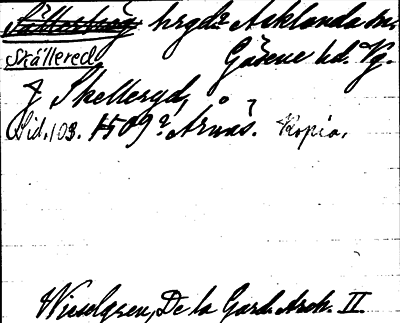 hrgd. Asklanda sn.
Skällered. Gäsene hd. Vg.
J Skelleryd,
Sid. 103. 1509? Årnäs. Kopia.
Wieselgren, De la Gard. Arch. II.